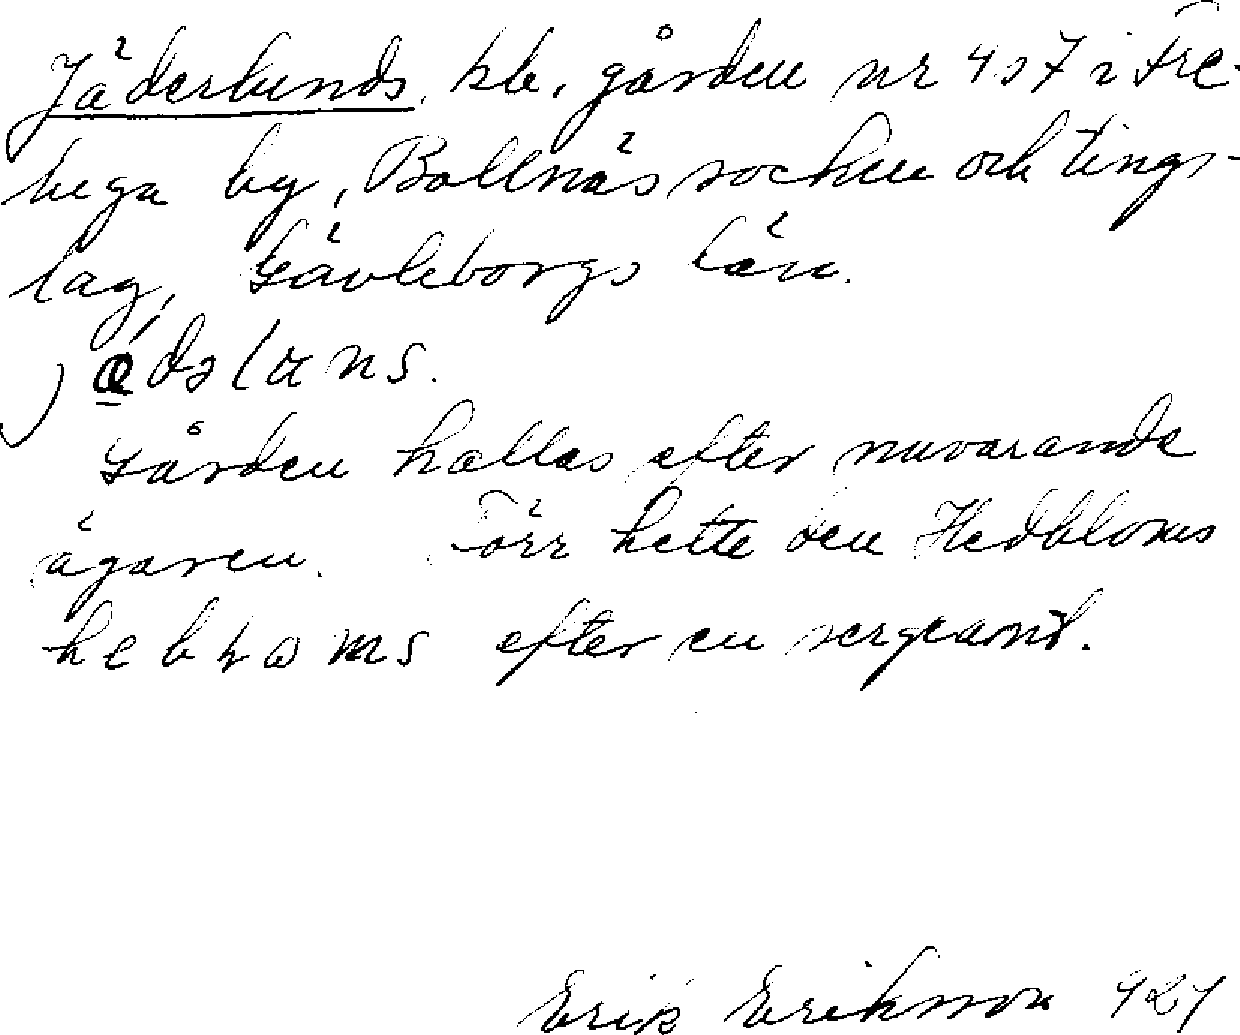 Jäderlunds, kb, gården nr 4 o 7 i Fre-
luga by, Bollnäs socken och tings-
lag, Gävleborgs län.
Gården kallas efter nuvarande
ägaren. Förr hette den Hedbloms
efter en sergeant.
Erik Erikson 927